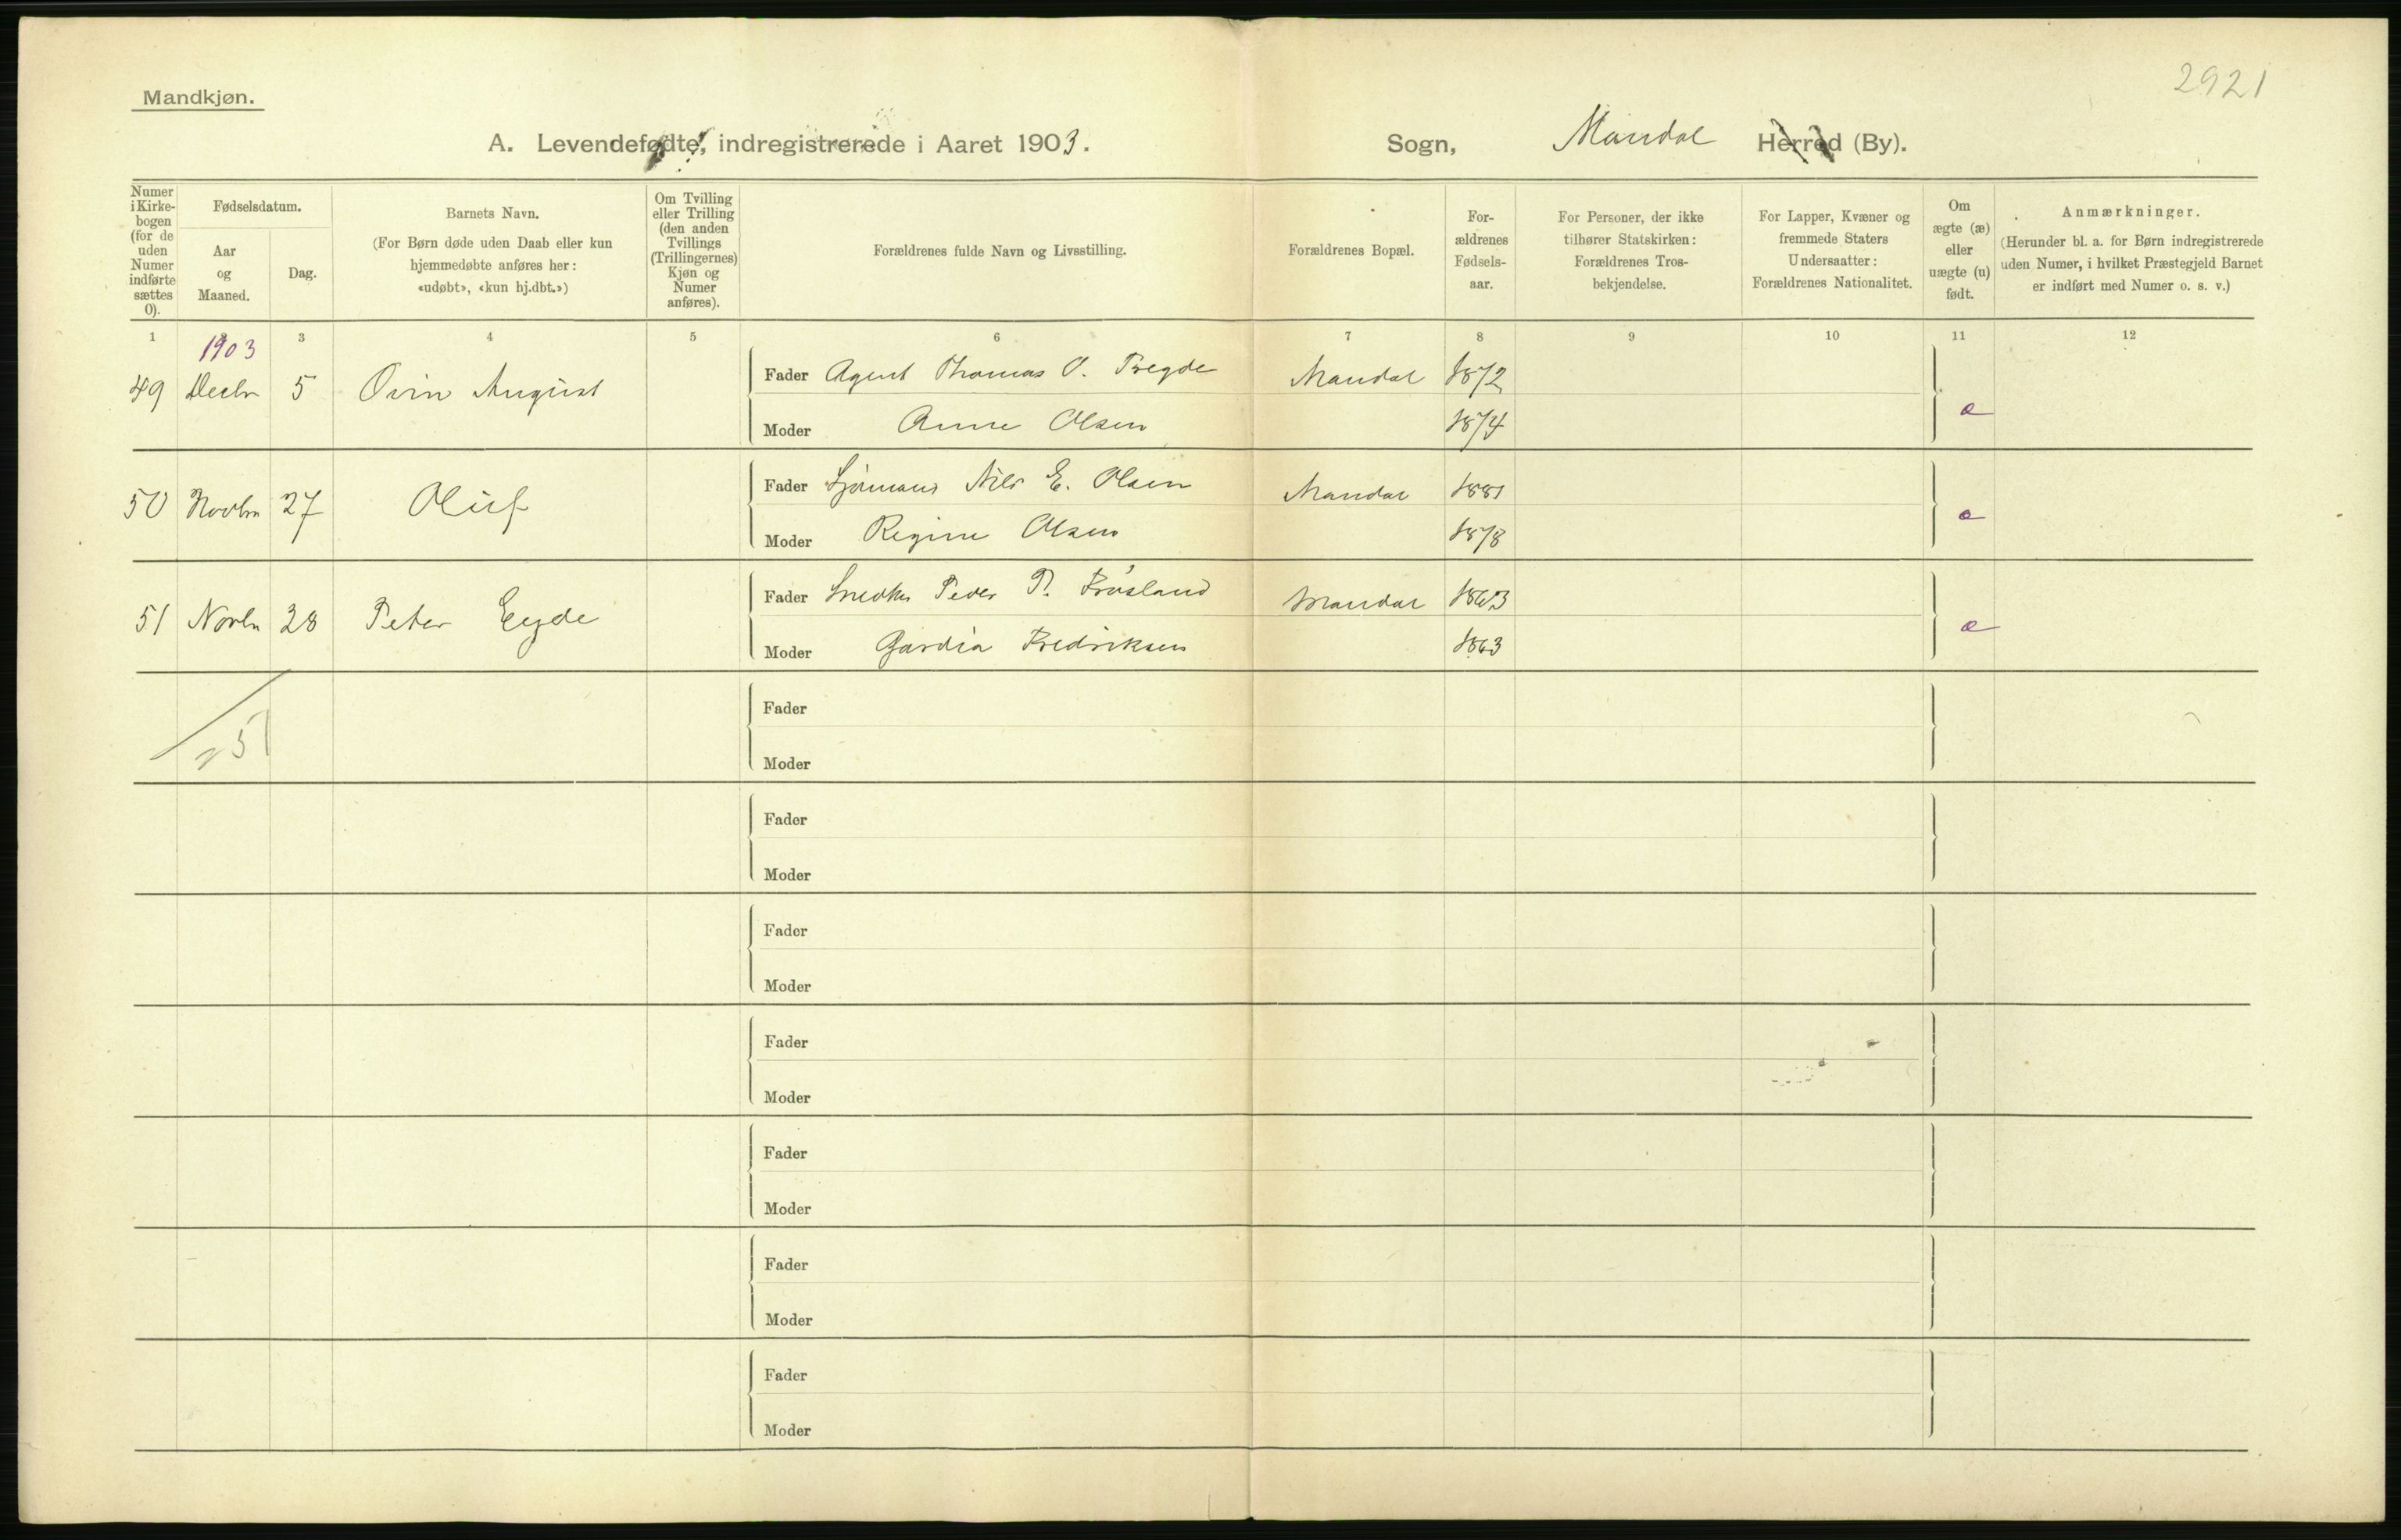 2921
Mandkjøn.
A. Levendefødte, indregistrerede i Aaret 1903.
Sogn, Mandal Herred (By).
Numer i Kirke-bogen (for de uden Numer indførte sættes 0).
Fødselsdatum.
Aar og Maaned.
Dag.
Barnets Navn.
(For Børn døde uden Daab eller kun hjemmedøbte anføres her: «udøbt», «kun hj.dbt.»)
Om Tvilling eller Trilling (den anden Tvillings (Trillingernes) Kjøn og Numer anføres).
Forældrenes fulde Navn og Livsstilling.
Forældrenes Bopæl.
For-ældrenes Fødsels-aar.
For Personer, der ikke tilhører Statskirken: Forældrenes Tros-bekjendelse.
For Lapper, Kvæner og fremmede Staters Undersaatter: Forældrenes Nationalitet.
Om ægte (æ) eller uægte (u) født.
Anmærkninger.
(Herunder bl. a. for Børn indregistrerede uden Numer, i hvilket Præstegjeld Barnet er indført med Numer o. s. v.)
1 3 4 5 6 7 8 9 10 11 12
1903
49 Decbr 5 August Fader Agent Thomas O. Tregde Mandal 1872
Moder Anne Olsen 1874 æ
50 Novbr 27 Oluf Fader Sjømand Nils E. Olsen Mandal 1881
Moder Regine Olsen 1878 æ
51 Novbr 28 Peter Eyde Fader Snedker Peder P. Mandal 1863
Moder Fredriksen 1863 æ
51
Fader
Moder
Fader
Moder
Fader
Moder
Fader
Moder
Fader
Moder
Fader
Moder
Fader
Moder